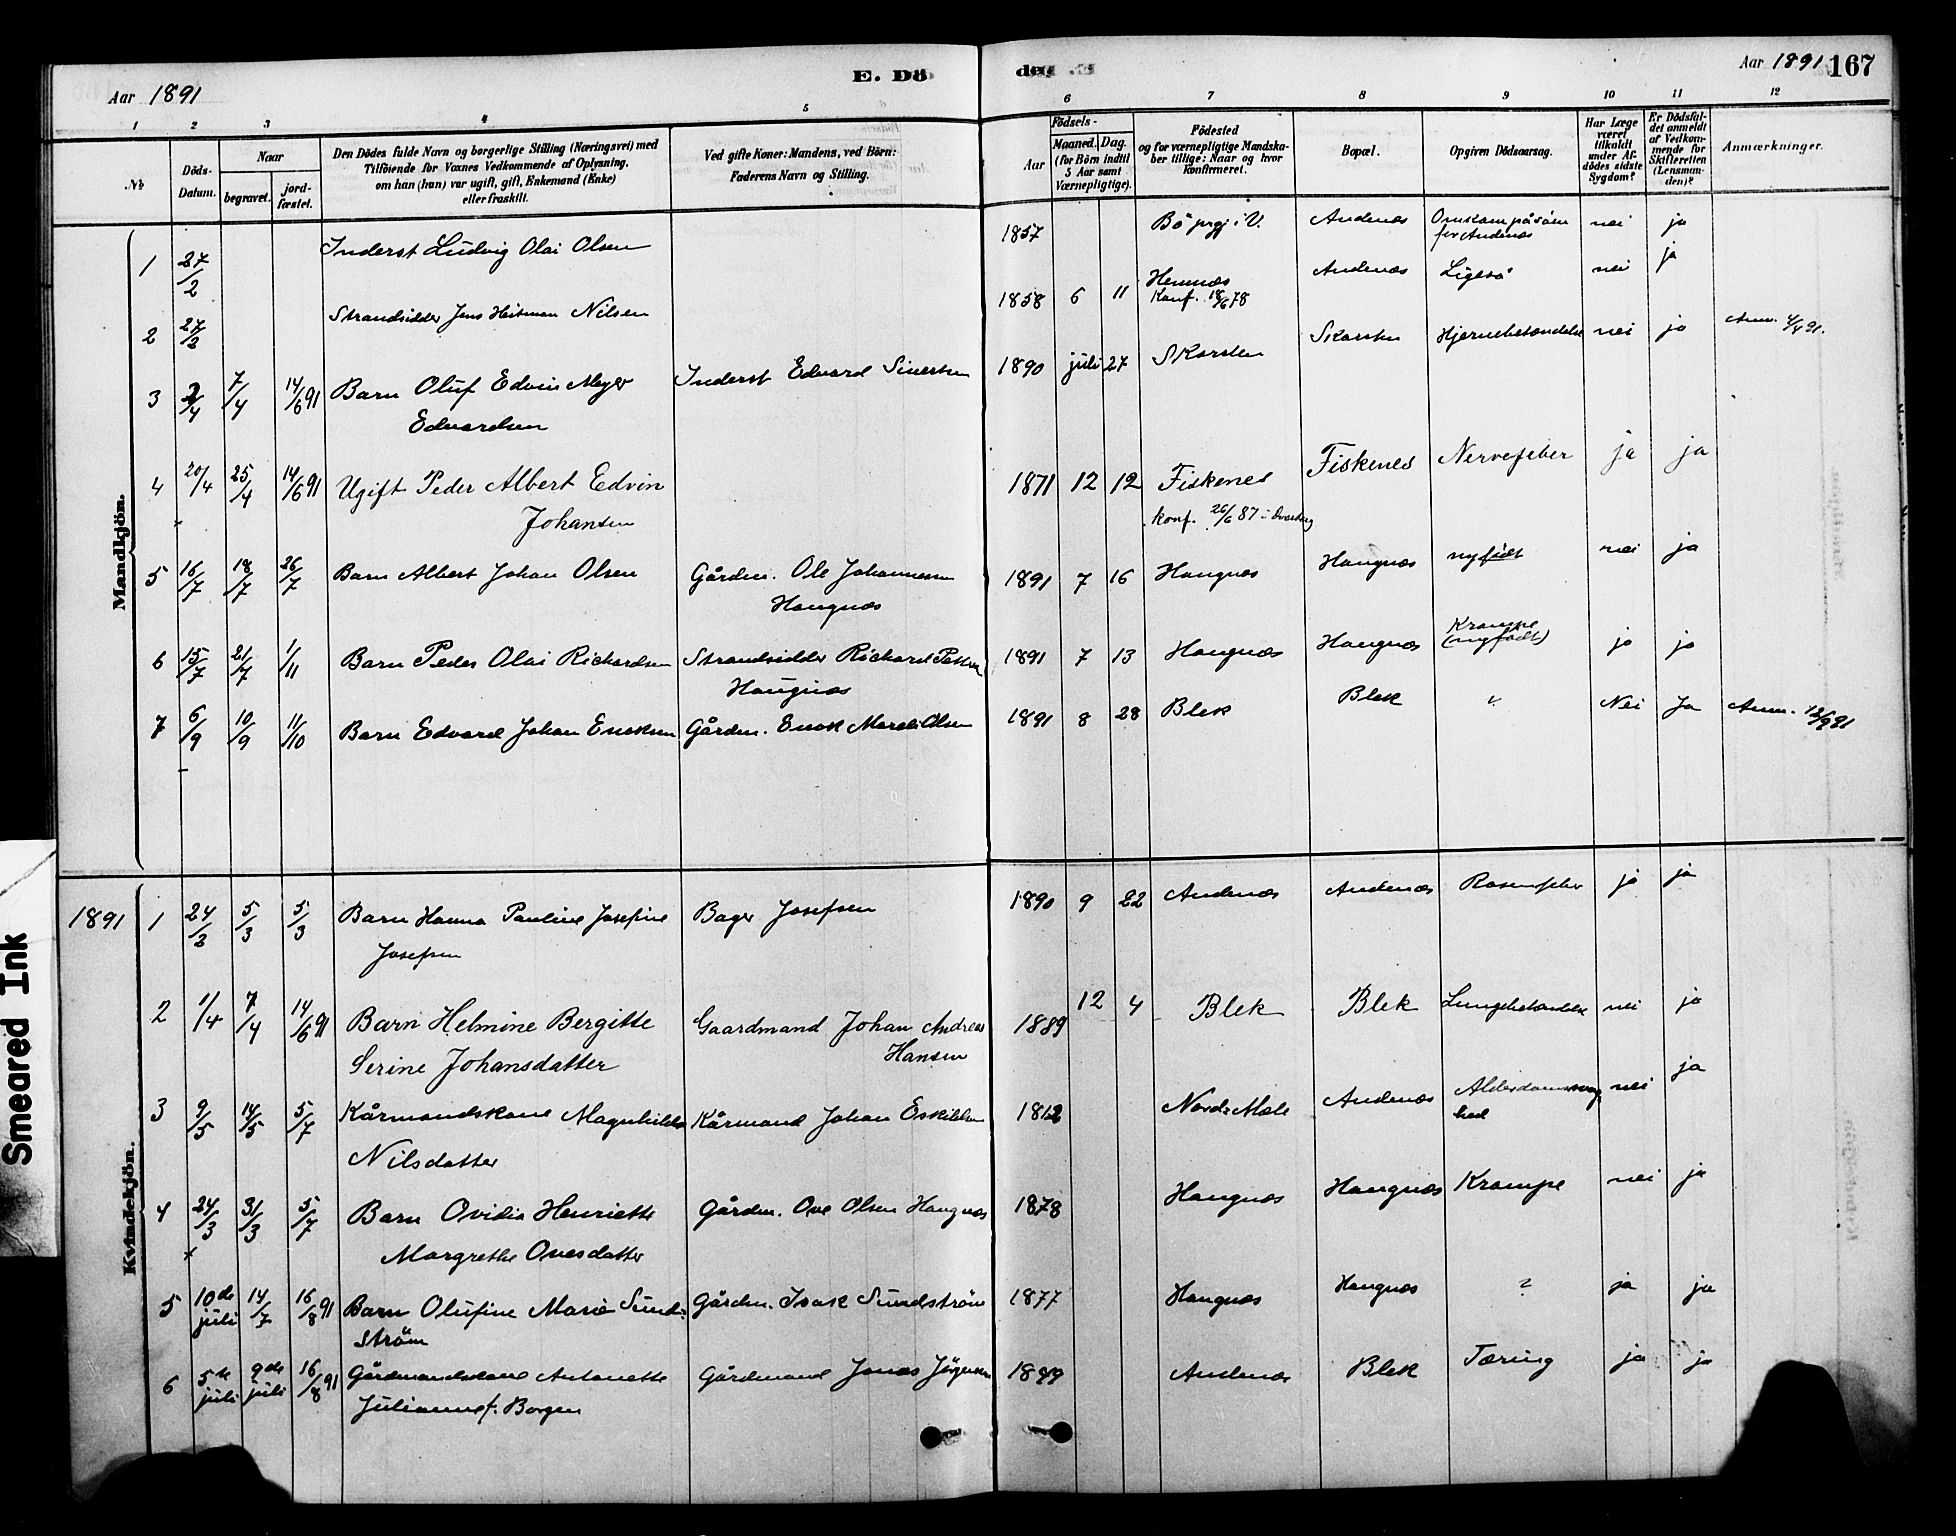 Aar 1891
E. Dö
den
Aar 1891
167
1 2 3 4 5 6 7 8 9 10 11 12
No
Döds-
Datum.
Naar
begravet.
jord-
fæstet.
Den Dödes fulde Navn og borgerlige Stilling (Næringsvei) med
Tilföiende for Voxnes Vedkommende af Oplysning,
om han (hun) var ugift, gift, Enkemand (Enke)
eller fraskilt.
Ved gifte Koner: Mandens, ved Börn:
Faderens Navn og Stilling.
Födsels-
Aar
Maaned. Dag.
(for Börn indtil
5 Aar samt
Værnepligtige).
Födested
og for værnepligtige Mandska-
ber tillige: Naar og hvor
Konfirmeret.
Bopæl.
Opgiven Dödsaarsag.
Har Læge
været
tilkaldt
under Af-
dödes sidste
Sygdom?
Er Dödsfal-
det anmeldt
af Vedkom-
mende for
Skifteretten
(Lensman-
den)?
Anmærkninger.
Mandkjön.
1 27/2 Inderst Ludvig Olai Olsen 1857 Bö prgj i V. Andenæs Omkom på söen nei ja
for Andenæs
2 27/2 Strandsidder Jens Heitman Nilsen 1858 6 11 Hemnæs Andenæs Ligeså nei ja
Konf. 78
3 2/4 7/4 14/6 91 Barn Oluf Edvin Meyer Inderst Edvard Sivertsen 1890 juli 27 Skarsten Skarsten Hjernebetændelse nei ja Anm. 4/4 91.
Edvardsen
4 20/4 25/4 14/6 91 Ugift Peder Albert Edvin 1871 12 12 Fiskenes Fiskenes Nervefeber ja ja
Johansen konf. 26/6 87 i Dverberg
5 16/7 18/7 26/7 Barn Albert Johan Olsen Gården. Ole Johannesen 1891 7 16 Haugnæs Haugnæs nyfödt nei ja
Haugnæs
6 15/7 21/7 1/11 Barn Peder Olai Richardsen Strandsidder Richard 1891 7 13 Haugnæs Haugnæs Krampe ja ja
Haugnæs (nyfödt)
7 6/9 10/9 11/10 Barn Edvard Johan Enoksen Gården. Enok Olsen 1891 8 28 Blek Blek ? Nei Ja Anm. 12/9 91
1891
Kvindekjön.
1 24/2 5/3 5/3 Barn Hanna Pauline Josefine Bager Josefsen 1890 9 22 Andenæs Andenæs Rosenfeber ja ja
Josefsen
2 1/4 7/4 14/6 91 Barn Helmine Bergitte Gaardmand Johan Andreas 1889 12 4 Blek Blek Lungebetændelse nei ja
Serine Johansdatter Hansen
3 9/5 14/5 5/7 Kårmandskone Magnhilda Kårmand Johan Eskildsen 1812 Nordr. Mæle Andenæs Alderdomssvag nei ja
Nilsdatter hed
4 24/3 31/3 5/7 Barn Ovidia Henriette Gården. Ove Olsen Haugnæs 1878 Haugnæs Haugnæs Krampe nei ja
Margrethe Ovesdatter
5 10de juli 14/7 16/8 91 Barn Olufine Marie Sund- Gården. Isak Sundström 1877 Haugnæs Haugnæs ? ja ja
ström
6 5te juli 9de juli 16/8 91 Gårdmandskone Antonette Gårdmand Jonas Jörgensen 1849 Andenæs Blek Tæring ja ja
Julianne f. Borgen
Smeared Ink